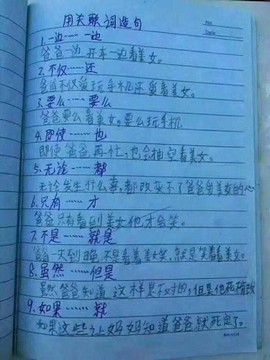 用关联词造句
1.一边……一边
爸爸一边开车一边看美女。
2.不仅……还
爸爸不仅爱玩手机还爱看美女。
3.要么……要么
爸爸要么看美女,要么玩手机。
4.即使……也
即使爸爸再忙,也会抽空看美女。
5.无论……都
无论发生什么事,都改变不了爸爸爱美女的心
6.只有……才
爸爸只有看到美女他才会笑。
7.不是……就是
爸爸一天到晚不是看着美女笑,就是笑着看美女。
8.虽然……但是
虽然爸爸知道这样是不对的,但是他死
9.如果……就
如果这些让妈妈知道爸爸就死定了。